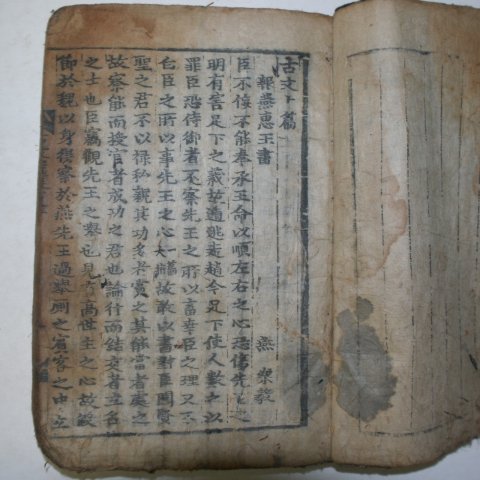 古文卜篇
報燕惠王書 燕 樂毅
臣不佞不能奉承王命以順左右之心恐傷先王之
明有害足下之義故遁逃走趙今足下使人數之以
罪臣恐侍御者不察先王之所以畜幸臣之理又不
白臣之所以事先王之心故敢以書對臣聞賢
聖之君不以祿私親其功多者賞之其能當者處之
故察能而授官者成功之君也論行而結交者立名
之士也臣竊觀先王之擧也見有高世主之心故假
節於魏以身得察於燕先王過擧厠之賓客之中立